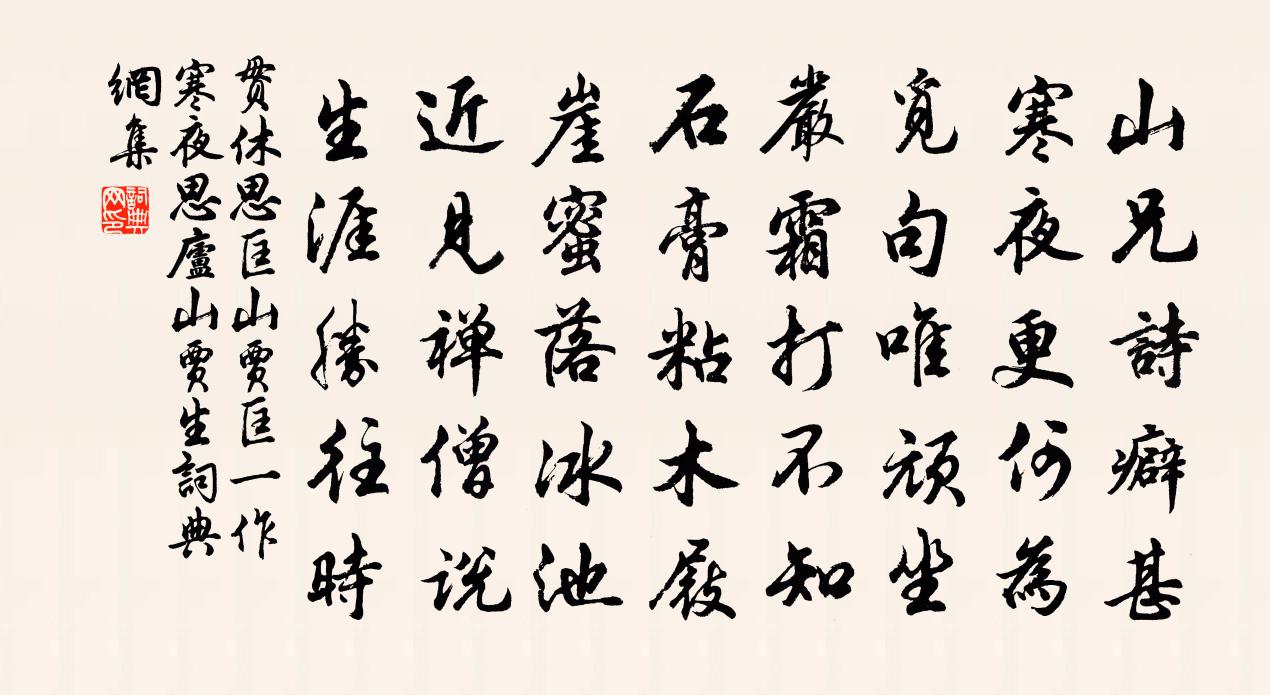 山兄詩癖甚
寒夜更何為
覓句唯頑坐
嚴霜打不知
石膏粘木屐
崖蜜落冰池
近見禅僧説
生涯勝往時
贯休思匡山賈匡一作
寒夜思廬山賈生詞典
網集
詞典网印